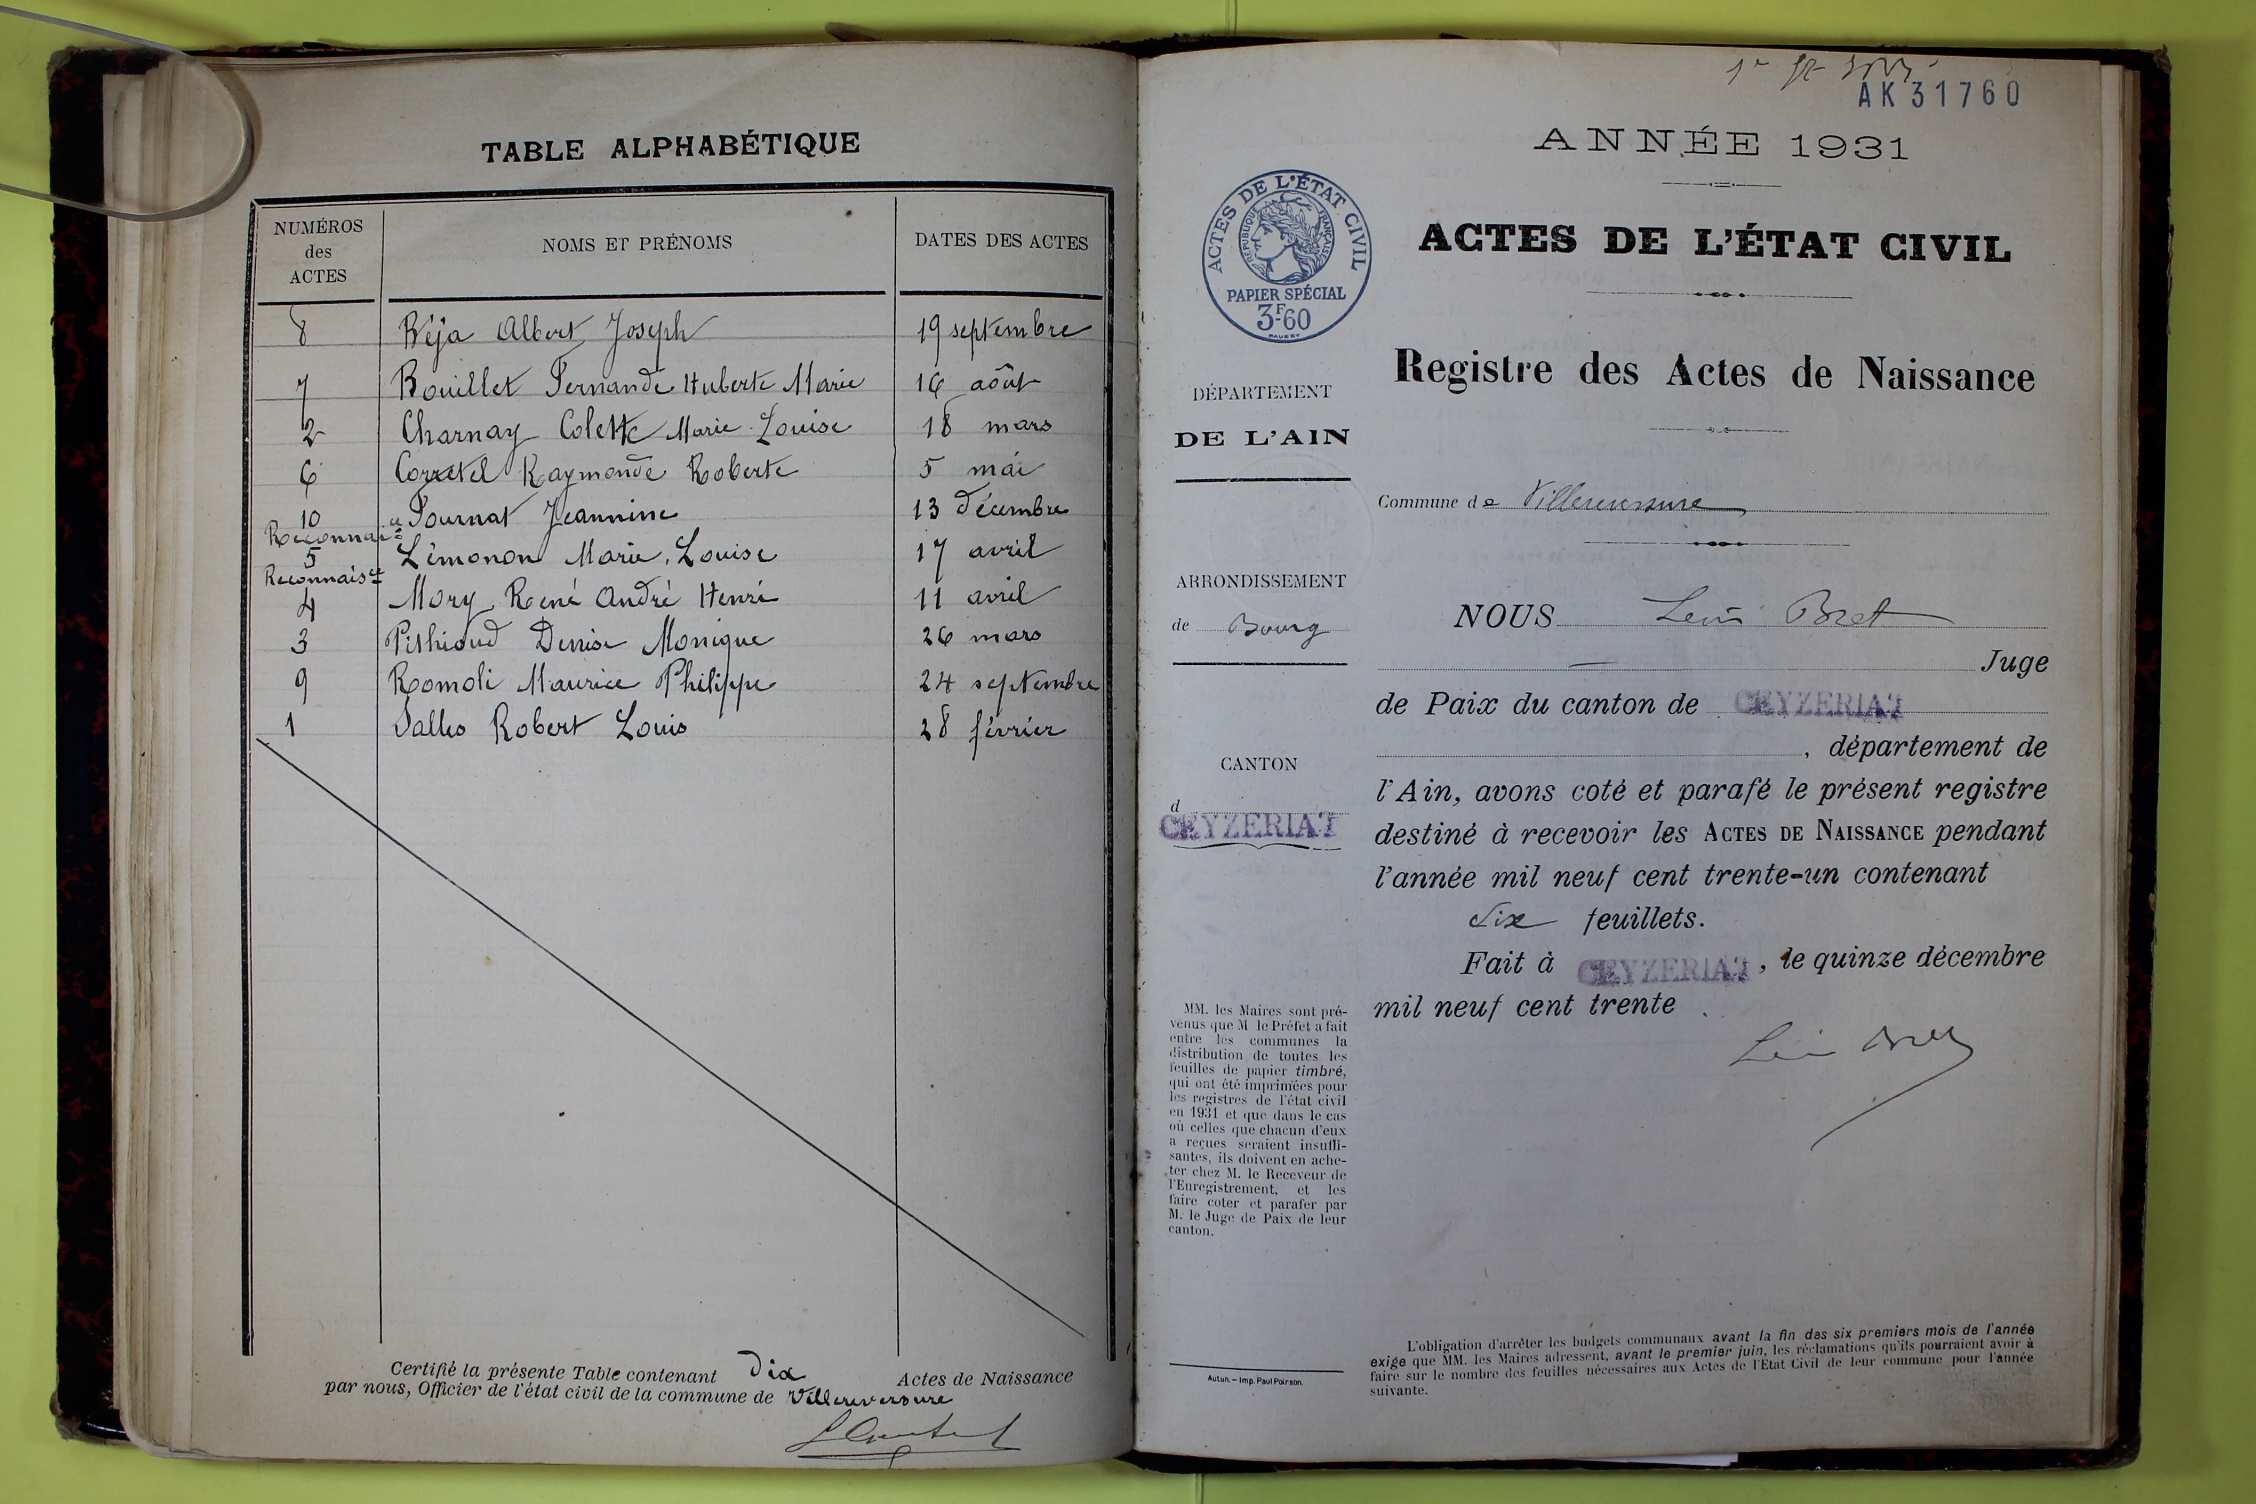 TABLE ALPHABÉTIQUE
NUMÉROS des ACTES NOMS ET PRÉNOMS DATES DES ACTES
8 Béja Albert Joseph 19 septembre
7 Bouillet Fernande Huberte Marie 16 août
2 Charnay Colette Marie Louise 18 mars
6 Corretel Raymonde Roberte 5 mai
10 Fournat Jeannine 13 décembre
Reconnaisce
5 Lémonon Marie Louise 17 avril
Reconnaisce
4 Mory René André Henri 11 avril
3 Pithioud Denise Monique 26 mars
9 Romoli Maurice Philippe 24 septembre
1 Salles Robert Louis 28 février
Certifié la présente Table contenant Dix Actes de Naissance
par nous, Officier de l'état civil de la commune de Villereversure
AK 31760
ANNÉE 1931
ACTES DE L'ÉTAT CIVIL
RÉPUBLIQUE FRANÇAISE
PAPIER SPÉCIAL
3F-60
ACTES DE L'ÉTAT CIVIL
Registre des Actes de Naissance
DÉPARTEMENT
DE L'AIN
Commune de Villereversure
ARRONDISSEMENT
de Bourg
CANTON
d
CEYZERIAT
NOUS Léon Bret
Juge
de Paix du canton de CEYZERIAT
, département de
l'Ain, avons coté et parafé le présent registre
destiné à recevoir les ACTES DE NAISSANCE pendant
l'année mil neuf cent trente-un contenant
Six feuillets.
Fait à CEYZERIAT, le quinze décembre
mil neuf cent trente .
Léon Bret
MM. les Maires sont pré-
venus que M le Préfet a fait
entre les communes la
distribution de toutes les
feuilles de papier timbré,
qui ont été imprimées pour
les registres de l'état civil
en 1931 et que dans le cas
où celles que chacun d'eux
a reçues seraient insuffi-
santes, ils doivent en ache-
ter chez M. le Receveur de
l'Enregistrement, et les
faire coter et parafer par
M. le Juge de Paix de leur
canton.
Autun. – Imp. Paul Poirson.
L'obligation d'arrêter les budgets communaux avant la fin des six premiers mois de l'année
exige que MM. les Maires adressent, avant le premier juin, les réclamations qu'ils pourraient avoir à
faire sur le nombre des feuilles nécessaires aux Actes de l'Etat Civil de leur commune pour l'année
suivante.